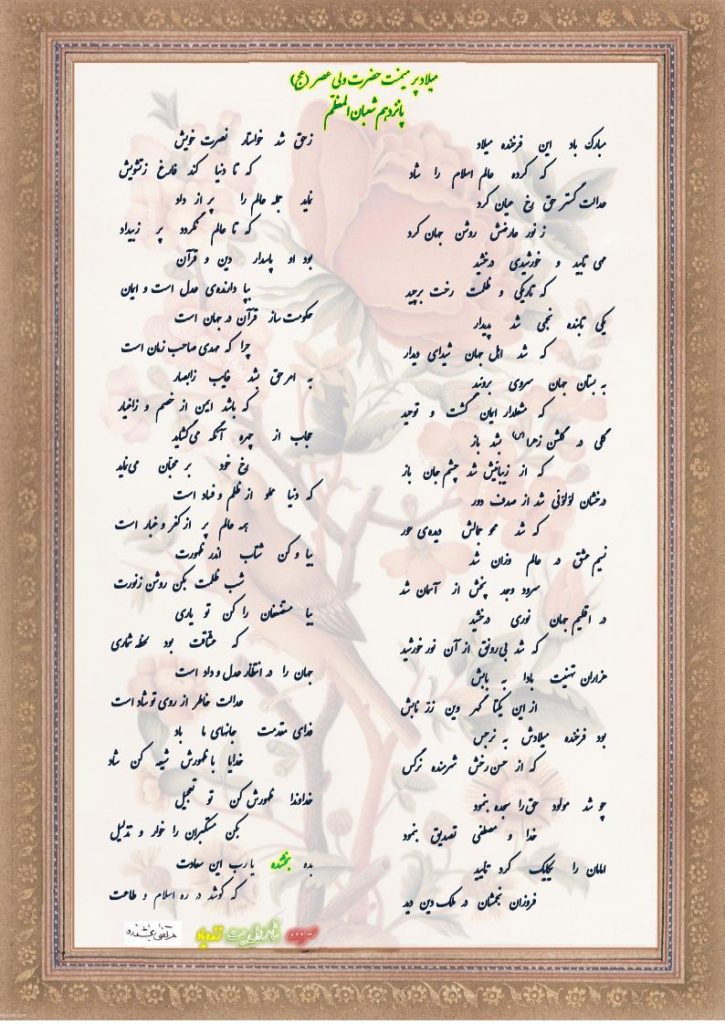 میلاد پر میمنت حضرت ولی عصر (عج)
پانزدهم شعبان المعظم
مبارک باد این فرخنده میلاد
که کرده عالم اسلام را شاد
عدالت گستر حق رخ عیان کرد
ز نور عارضش روشن جهان کرد
می تابید و خورشیدی درخشید
که تاریکی و ظلمت رخت برچید
یکی تابنده نجمی شد پدیدار
که شد اهل جهان شیدای دیدار
به بستان جهان سروی بروئید
که مشعلدار ایمان گشت و توحید
گلی در گلشن زهرا (س) شد باز
که از زیبائیش شد چشم جان باز
درخشان لؤلؤئی شد از صدف دور
که شد محو جمالش دیده‌ی حور
نسیم عشق در عالم وزان شد
سرود وجد پخش از آسمان شد
در اقلیم جهان نوری درخشید
که شد بی‌رونق از آن نور خورشید
هزاران تهنیت بادا به بابش
از این یکتا گهر وین زر نابش
بود فرخنده میلادش به نرجس
که از حسن رخش شرمنده نرگس
چو شد مولود حق را سجده بنمود
خدا و مصطفی تصدیق بنمود
امامان را یکایک کرد تایید
فروزان نجمشان در ملک دین دید
زحق شد خواستار نصرت خویش
که تا دنیا کند فارغ زتشویش
نماید جمله عالم را پر از داد
که تا عالم نگردد پر زبیداد
بود او پاسدار دین و قرآن
بپا دارنده‌ی عدل است و ایمان
حکومت ساز قرآن در جهان است
چرا که مهدی صاحب زمان است
به امر حق شد غایب زابصار
که باشد ایمن از خصم و زاغیار
حجاب از چهره آنگه می‌گشاید
رخ خود بر محبّان می‌نماید
که دنیا مملو از ظلم و فساد است
همه عالم پر از کفر و عناد است
بیا و کن شتاب اندر ظهورت
شب ظلمت بکن روشن زنورت
بیا مستضعفان را کن تو یاری
که مشتاقت بود لحظه شماری
جهان را در انتظار عدل و داد است
عدالت خاطر از روی تو شاد است
فدای مقدمت جانهای ما باد
خدایا با ظهورش شیعه کن شاد
خداوندا ظهورش کن تو تعجیل
بکن مستکبران را خوار و تذلیل
بده بخشنده یا رب این سعادت
که کوشد در ره اسلام و طاعت
سروده شاعر اهل بیت زنده یاد مرتضی بخشنده